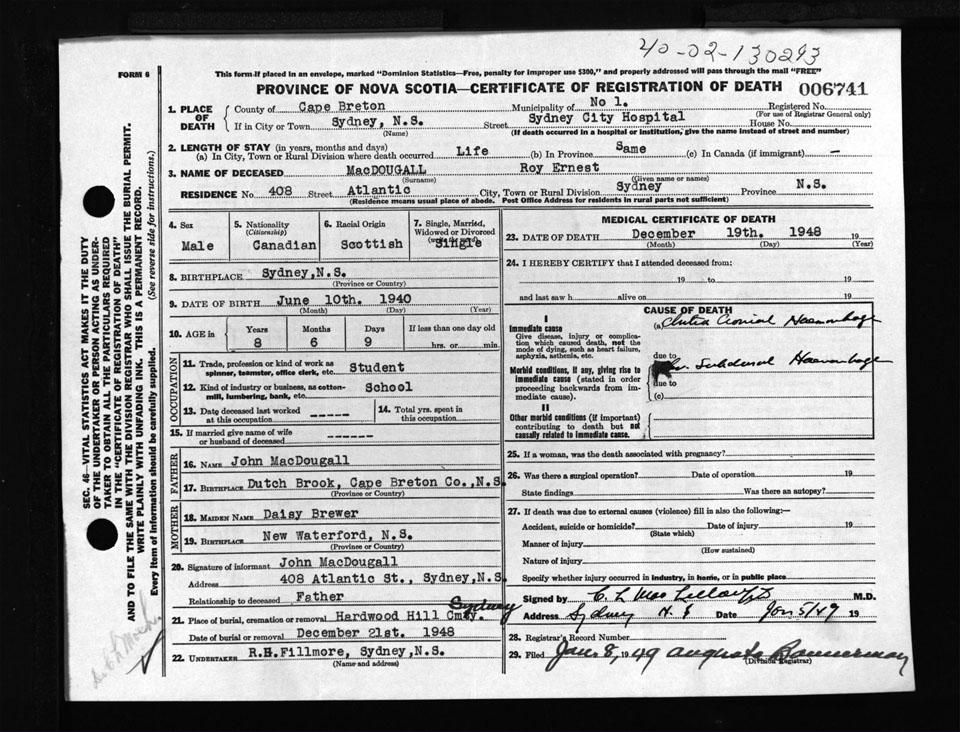 40-02-130293
FORM 6
This form if placed in an envelope, marked "Dominion Statistics—Free, penalty for improper use $300," and properly addressed will pass through the mail "FREE"
PROVINCE OF NOVA SCOTIA—CERTIFICATE OF REGISTRATION OF DEATH 006741
1. PLACE OF DEATH
County of Cape Breton Municipality of No 1. Registered No.
(For use of Registrar General only)
If in City or Town Sydney, N.S. Street Sydney City Hospital House No.
(Name) (If death occurred in a hospital or institution, give the name instead of street and number)
2. LENGTH OF STAY (in years, months and days)
(a) In City, Town or Rural Division where death occurred Life (b) In Province Same (c) In Canada (if immigrant) —
3. NAME OF DECEASED MacDOUGALL Roy Ernest
(Surname) (Given name or names)
RESIDENCE No 408 Street Atlantic City, Town or Rural Division Sydney Province N.S.
(Residence means usual place of abode. Post Office Address for residents in rural parts not sufficient)
4. Sex Male
5. Nationality (Citizenship) Canadian
6. Racial Origin Scottish
7. Single, Married, Widowed or Divorced (write the word) Single
8. BIRTHPLACE Sydney, N.S.
(Province or Country)
9. DATE OF BIRTH June 10th. 1940
(Month) (Day) (Year)
10. AGE in Years 8 Months 6 Days 9 If less than one day old hrs. or min.
OCCUPATION
11. Trade, profession or kind of work as spinner, teamster, office clerk, etc. Student
12. Kind of industry or business, as cotton-mill, lumbering, bank, etc. School
13. Date deceased last worked at this occupation ------
14. Total yrs. spent in this occupation
15. If married give name of wife or husband of deceased -------
FATHER
16. NAME John MacDougall
17. BIRTHPLACE Dutch Brook, Cape Breton Co., N.S.
(Province or Country)
MOTHER
18. MAIDEN NAME Daisy Brewer
19. BIRTHPLACE New Waterford, N.S.
(Province or Country)
20. Signature of informant John MacDougall
Address 408 Atlantic St., Sydney, N.S.
Relationship to deceased Father
21. Place of burial, cremation or removal Hardwood Hill Cmty. Sydney
Date of burial or removal December 21st. 1948
22. UNDERTAKER R.H.Fillmore, Sydney, N.S.
(Name and address)
MEDICAL CERTIFICATE OF DEATH
23. DATE OF DEATH December 19th. 1948 19
(Month) (Day) (Year)
24. I HEREBY CERTIFY that I attended deceased from:
19 to 19
and last saw h alive on 19
CAUSE OF DEATH
I
Immediate cause
Give disease, injury or complication which caused death, not the mode of dying, such as heart failure, asphyxia, asthenia, etc.
(a) Haemorrhage
due to
Subdural Haemorrhage
Morbid conditions, if any, giving rise to immediate cause (stated in order proceeding backwards from immediate cause).
due to
(c)
II
Other morbid conditions (if important) contributing to death but not causally related to immediate cause.
25. If a woman, was the death associated with pregnancy?
26. Was there a surgical operation? Date of operation 19
State findings Was there an autopsy?
27. If death was due to external causes (violence) fill in also the following:—
Accident, suicide or homicide? Date of injury 19
(State which)
Manner of injury
(How sustained)
Nature of injury
Specify whether injury occurred in industry, in home, or in public place
Signed by C. L. M.D.
Address Sydney N.S Date Jan 5/49 19
28. Registrar's Record Number
29. Filed Jan. 8, 1949 Augusta Bannerman
(Division Registrar)
SEC. 46—VITAL STATISTICS ACT MAKES IT THE DUTY
OF THE UNDERTAKER OR PERSON ACTING AS UNDER-
TAKER TO OBTAIN ALL THE PARTICULARS REQUIRED
IN THE "CERTIFICATE OF REGISTRATION OF DEATH"
AND TO FILE THE SAME WITH THE DIVISION REGISTRAR WHO SHALL ISSUE THE BURIAL PERMIT.
WRITE PLAINLY WITH UNFADING INK. THIS IS A PERMANENT RECORD.
Every item of Information should be carefully supplied. (See reverse side for instructions.)